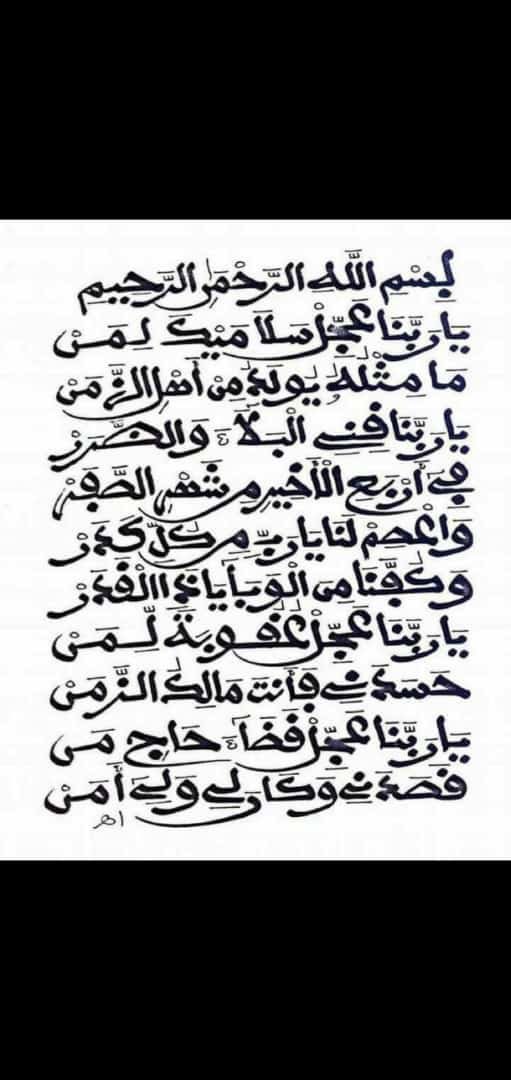 بِسْمِ اللَّهِ الرَّحْمَنِ الرَّحِيمِ
يَارَبَّنَا عَجِّلْ لِمَنْ
مَا مِثْلُهُ يُولَدُ مِنْ أَهْلِ الزَّمَنْ
يَارَبَّنَا قِنِي الْبَلَاءَ وَالضَّرَرْ
فِي أَرْبَعِ الْأَخِيرِ مِنْ شَهْرِ الصَّفَرْ
وَاعْصِمْ لَنَا يَارَبِّ مِنْ كُلِّ كَدَرْ
وَكَفِّنَا مِنَ الْوَبَأ يَاذَا الْقَدَرْ
يَارَبَّنَا عَجِّلْ عُقُوبَةً لِّمَنْ
حَسَدَنِي فَأَنْتَ مَالِكُ الزَّمَنْ
يَارَبَّنَا عَجِّلْ قَضَاءَ حَاجِ مَنْ
قَصَدَنِي وَكَانَ لِي وَلِيَ أَمَنْ
اهـ